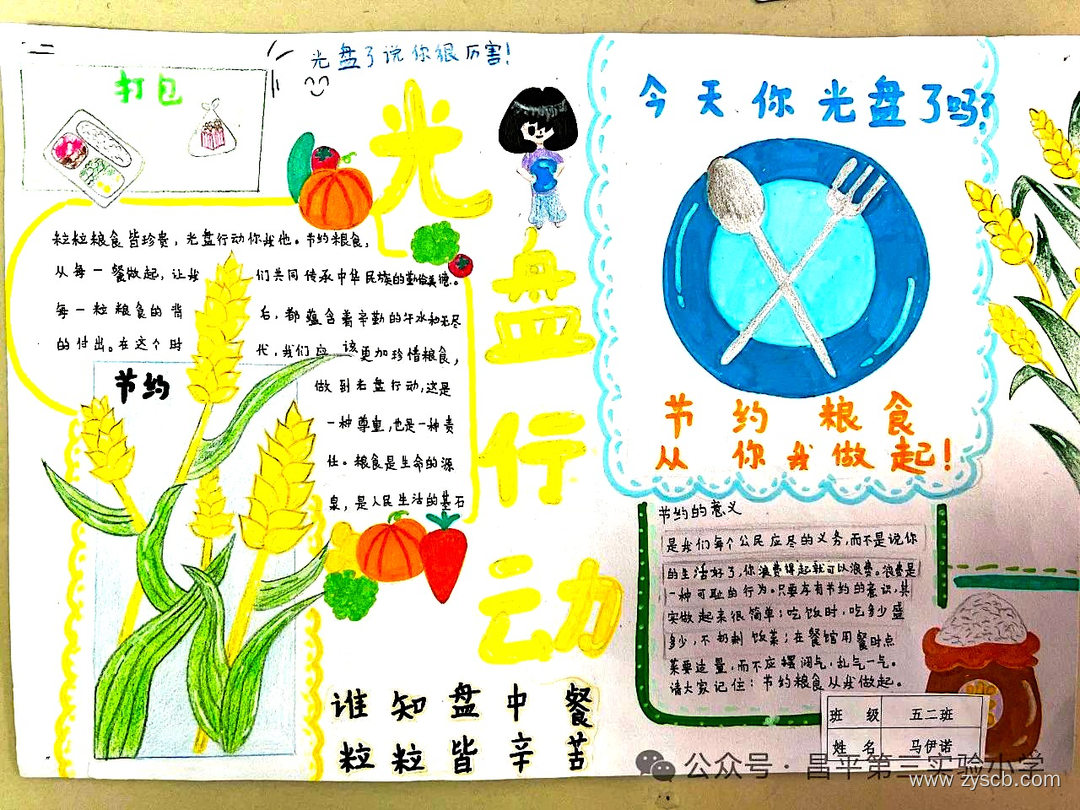 光盘了说你很厉害!
打包
光盘行动
粒粒粮食皆珍贵,光盘行动你我他。节约粮食,
从每一餐做起,让我们共同传承中华民族的勤俭美德。
每一粒粮食的背后,都蕴含着辛勤的汗水和无尽
的付出。在这个时代,我们应该更加珍惜粮食,
做到光盘行动,这是
一种尊重,也是一种责
任。粮食是生命的源
泉,是人民生活的基石
节约
谁知盘中餐
粒粒皆辛苦
今天你光盘了吗?
节约粮食
从你我做起!
节约的意义
是我们每个公民应尽的义务,而不是说你
的生活好了,你浪费得起就可以浪费。浪费是
一种可耻的行为。只要存有节约的意识,其
实做起来很简单:吃饭时,吃多少盛
多少,不扔剩饭菜;在餐馆用餐时点
菜要适量,而不应摆阔气,乱点一气。
请大家记住:节约粮食从我做起。
班级 五二班
姓名 马伊诺
公众号·昌平第三实验小学
www.zyscb.com